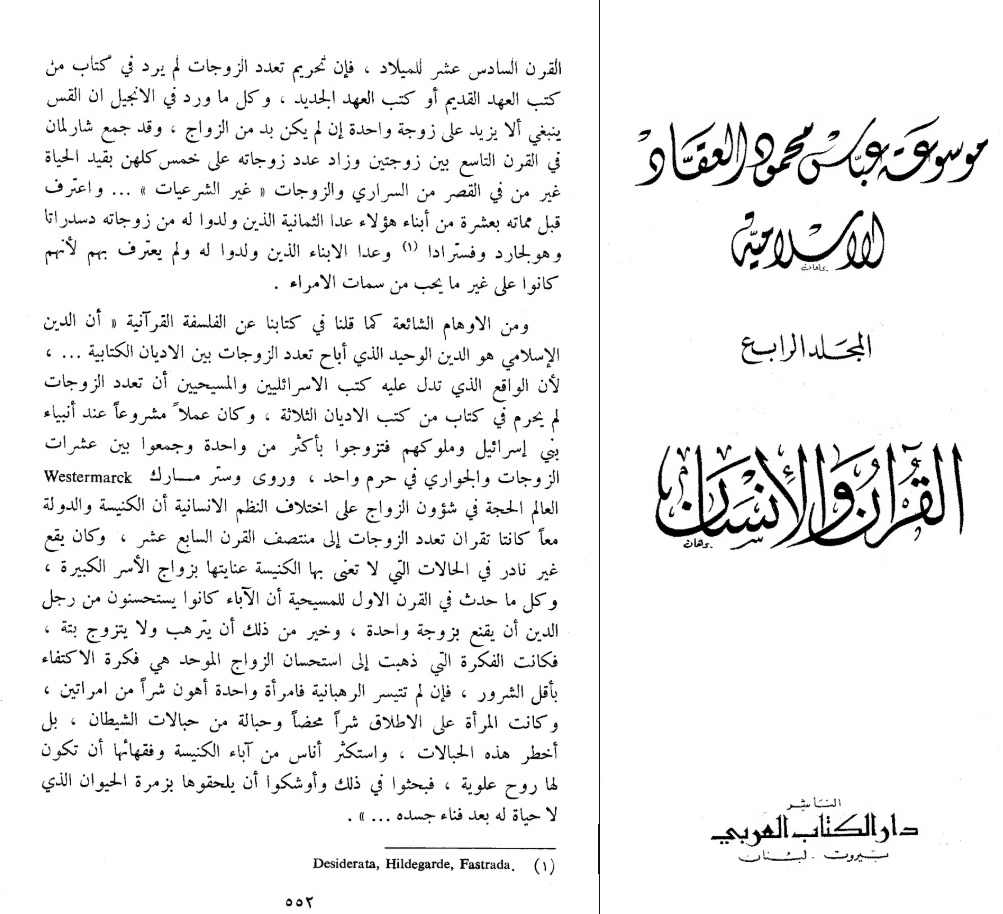 القرن السادس عشر للميلاد ، فإن تحريم تعدد الزوجات لم يرد في كتاب من
كتب العهد القديم أو كتب العهد الجديد ، وكل ما ورد في الانجيل ان القس
ينبغي ألا يزيد على زوجة واحدة إن لم يكن بد من الزواج ، وقد جمع شارلمان
في القرن التاسع بين زوجتين وزاد عدد زوجاته على خمس كلهن بقيد الحياة
غير من في القصر من السراري والزوجات « غير الشرعيات » ... واعترف
قبل مماته بعشرة من أبناء هؤلاء عدا الثمانية الذين ولدوا له من زوجاته دسدراتا
وهولجارد وفسترادا (١) وعدا الابناء الذين ولدوا له ولم يعترف بهم لأنهم
كانوا على غير ما يحب من سمات الامراء .
ومن الاوهام الشائعة كما قلنا في كتابنا عن الفلسفة القرآنية « أن الدين
الإسلامي هو الدين الوحيد الذي أباح تعدد الزوجات بين الاديان الكتابية ... ،
لأن الواقع الذي تدل عليه كتب الاسرائليين والمسيحيين أن تعدد الزوجات
لم يحرم في كتاب من كتب الاديان الثلاثة ، وكان عملاً مشروعاً عند أنبياء
بني إسرائيل وملوكهم فتزوجوا بأكثر من واحدة وجمعوا بين عشرات
الزوجات والجواري في حرم واحد ، وروى وستر مسارك Westermarck
العالم الحجة في شؤون الزواج على اختلاف النظم الانسانية أن الكنيسة والدولة
معاً كانتا تقران تعدد الزوجات إلى منتصف القرن السابع عشر ، وكان يقع
غير نادر في الحالات التي لا تعنى بها الكنيسة عنايتها بزواج الأسر الكبيرة ،
وكل ما حدث في القرن الاول للمسيحية أن الآباء كانوا يستحسنون من رجل
الدين أن يقنع بزوجة واحدة ، وخير من ذلك أن يترهب ولا يتزوج بتة ،
فكانت الفكرة التي ذهبت إلى استحسان الزواج الموحد هي فكرة الاكتفاء
بأقل الشرور ، فإن لم تتيسر الرهبانية فامرأة واحدة أهون شراً من امراتين ،
وكانت المرأة على الاطلاق شراً محضاً وحبالة من حبالات الشيطان ، بل
أخطر هذه الحبالات ، واستكثر أناس من آباء الكنيسة وفقهائها أن تكون
لها روح علوية ، فبحثوا في ذلك وأوشكوا أن يلحقوها بزمرة الحيوان الذي
لا حياة له بعد فناء جسده ... » .
(١) Desiderata, Hildegarde, Fastrada.
٥٥٢
موسوعة عباس محمود العقاد
الإسلامية
المجلد الرابع
القرآن والإنسان
الناشر
دار الكتاب العربي
بيروت . لبنان